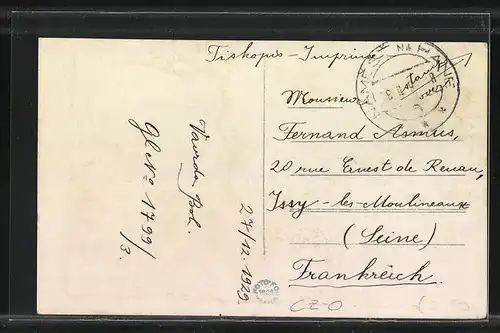 Tiskopis - Imprimé
NÁMĚŠŤ NA HANÉ
Monsieur
Fernand Asmus,
20 rue Ernest de Renan,
Issy-les-Moulineaux
(Seine)
Frankreich.
Vavrda Bol.
Gl. No 1799/
/3.
27/12.1929
CZ-O